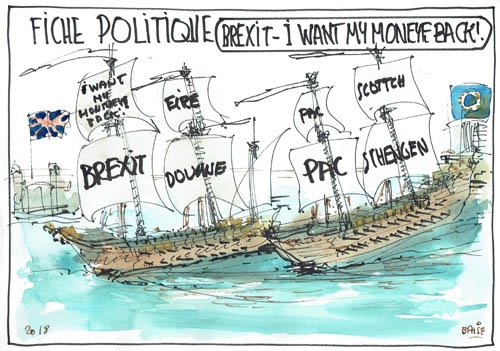 FICHE POLITIQUE BREXIT - I WANT MY MONEYE BACK!.
I WANT
MY
MONEYE
BACK.
EIRE
PAC
SCOTTCH
BREXIT
DOUANE
PAC
SCHENGEN
2018